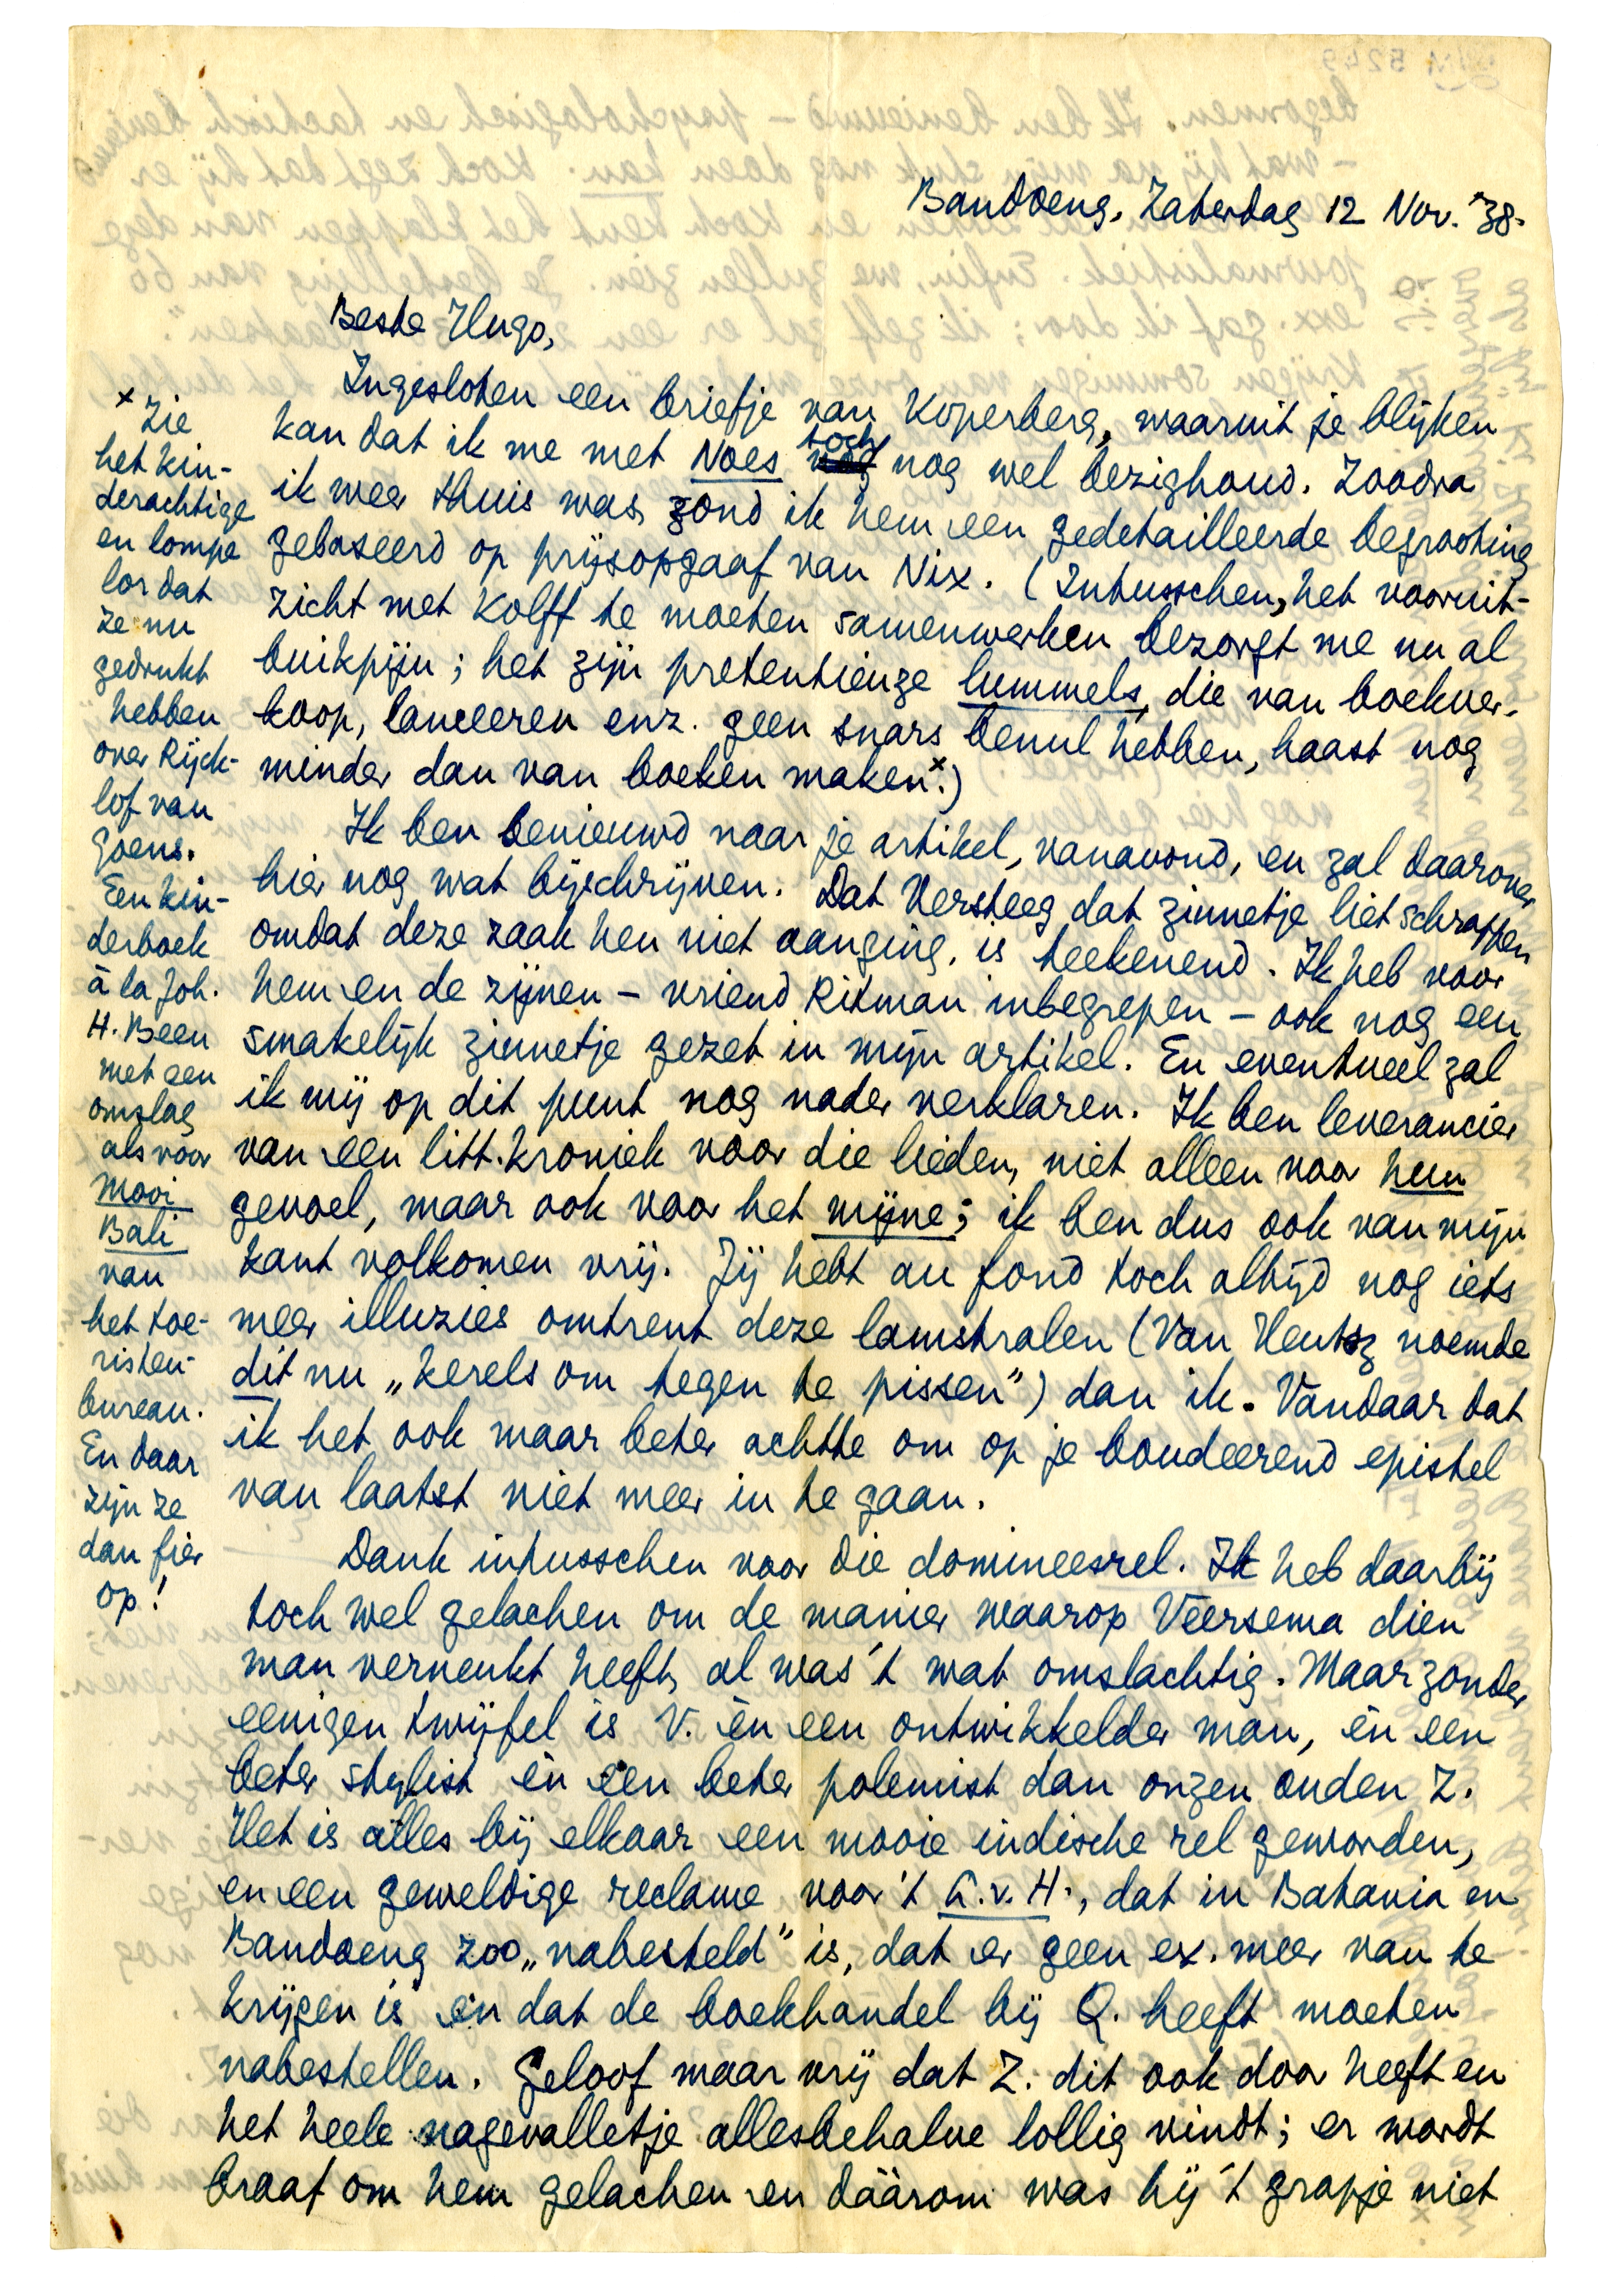 Bandoeng, Zaterdag 12 Nov. '38.
Beste Hugo,
Ingesloten een briefje van Koperberg, waaruit je blijken
kan dat ik me met Noes toch nog wel bezighoud. Zoodra
ik weer thuis was, zond ik hem een gedetailleerde begrooting
gebaseerd op prijsopgaaf van Nix. (Intusschen, het vooruit-
zicht met Kolff te moeten samenwerken bezorgt me nu al
buikpijn; het zijn pretentieuze lummels, die van boekver-
koop, lanceeren enz. geen snars benul hebben, haast nog
minder dan van boeken makenˣ.)
Ik ben benieuwd naar je artikel, vanavond, en zal daarover
hier nog wat bijschrijven. Dat Versteeg dat zinnetje liet schrappen
omdat deze zaak hen niet aanging, is teekenend. Ik heb voor
hem en de zijnen – vriend Ritman inbegrepen – ook nog een
smakelijk zinnetje gezet in mijn artikel. En eventueel zal
ik mij op dit punt nog nader verklaren. Ik ben leverancier
van een litt. kroniek voor die lieden, niet alleen voor hun
gevoel, maar ook voor het mijne; ik ben dus ook van mijn
kant volkomen vrij. Jij hebt au fond toch altijd nog iets
meer illuzies omtrent deze lamstralen (Van Heutsz noemde
dit nu „kerels om tegen te pissen”) dan ik. Vandaar dat
ik het ook maar beter achtte om op je boudeerend epistel
van laatst niet meer in te gaan.
Dank intusschen voor die domineesrel. Ik heb daarbij
toch wel gelachen om de manier waarop Veersema dien
man verneukt heeft, al was 't wat omslachtig. Maar zonder
eenigen twijfel is V. èn een ontwikkelder man, èn een
beter stylist èn een beter polemist dan onzen ouden Z.
Het is alles bij elkaar een mooie indische rel geworden,
en een geweldige reclame voor 't G.v.H., dat in Batavia en
Bandoeng zoo „nabesteld” is, dat er geen ex. meer van te
krijgen is en dat de boekhandel bij Q. heeft moeten
nabestellen. Geloof maar vrij dat Z. dit ook door heeft en
het heele nagevalletje allesbehalve lollig vindt; er wordt
braaf om hem gelachen en dáárom was hij 't grapje niet
ˣ Zie
het kin-
derachtige
en lompe
lor dat
ze nu
gedrukt
hebben
over Rijck-
lof van
Goens.
Een kin-
derboek
à la Joh.
H. Been
met een
omslag
als voor
Mooi
Bali
van
het toe-
risten-
bureau.
En daar
zijn ze
dan fier
op!